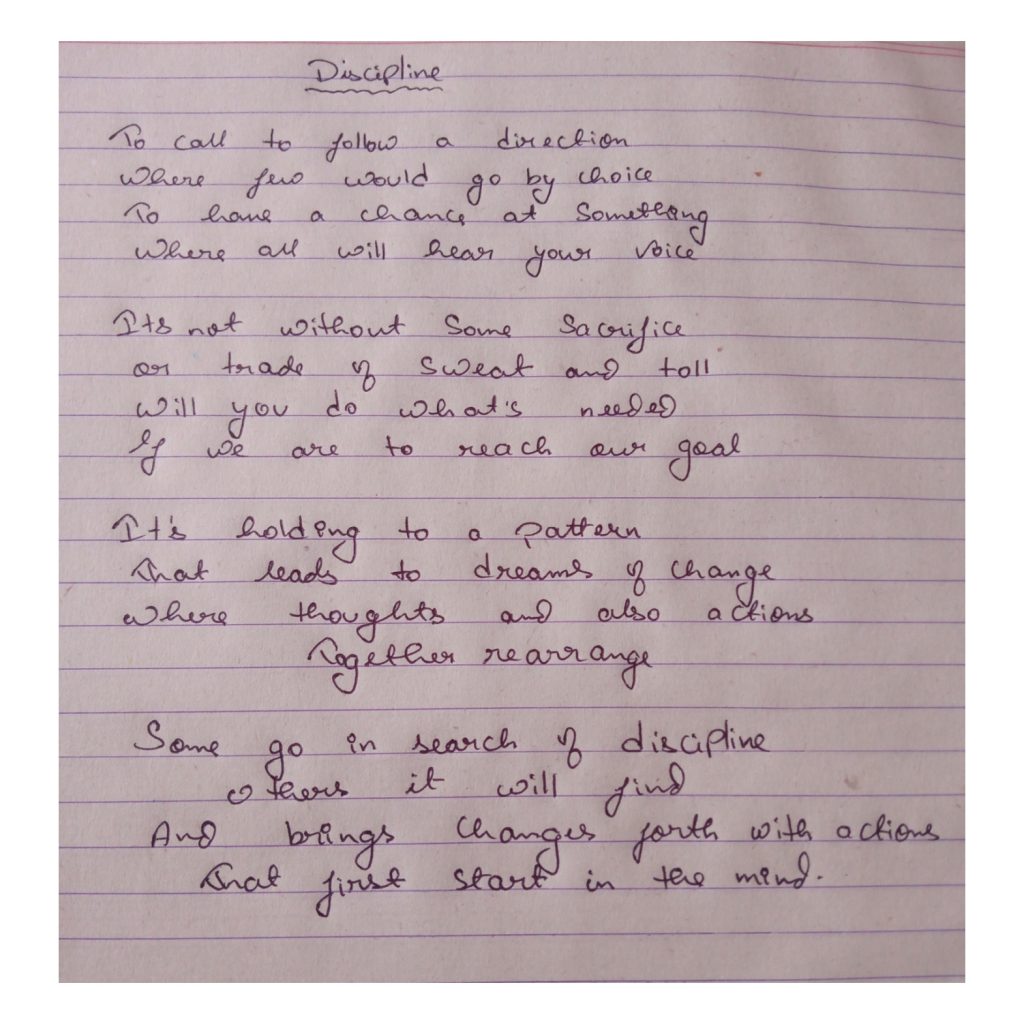 Discipline
To call to follow a direction
Where few would go by choice
To have a chance at Something
Where all will hear your voice
Its not without Some Sacrifice
or trade of Sweat and toll
Will you do what's needed
If we are to reach our goal
It's holding to a pattern
That leads to dreams of change
Where thoughts and also actions
Together rearrange
Some go in search of discipline
Others it will find
And brings Changes forth with actions
That first Start in the mind.